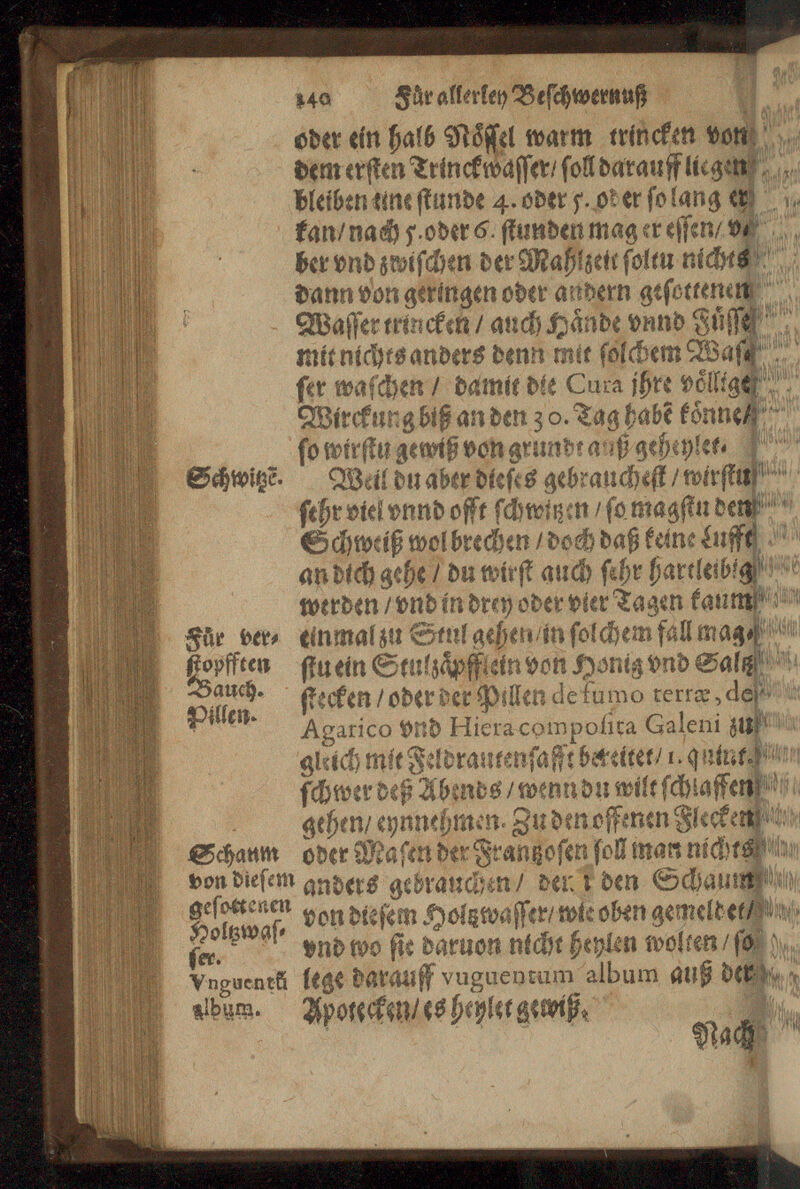 240 Für allerley Beſchwernuß
oder ein halb Nöſſel warm trincken von
dem erſten Trinckwaſſer/ ſoll darauff liegen
bleiben eine ſtunde 4. oder 5. oder ſo lang er
kan/ nach 5. oder 6. ſtunden mag er eſſen/
ber vnd zwiſchen der Mahlzeit ſoltu nichts
dann von geringen oder andern geſottenen
Waſſer trincken / auch Hände vnnd Füſſe
mit nichts anders denn mit ſolchem Waſ⸗
ſer waſchen / damit die Cura jhre völlige
Wirckung biß an den 30. Tag habē könne/
ſo wirſtu gewiß von grundt auß geheylet.
Schwitzē. Weil du aber dieſes gebraucheſt / wirſtu
ſehr viel vnnd offt ſchwitzen / ſo magſtu den
Schweiß wol brechen / doch daß keine Lufft
an dich gehe / du wirſt auch ſehr hartleibig
werden / vnd in drey oder vier Tagen kaum
Für ver⸗ einmal zu Stul gehen/ in ſolchem fall mag⸗
ſtopfften ſtu ein Stulzäpfflein von Honig vnd Saltz
Bauch. ſtecken / oder der Pillen de fumo terræ, de
Pillen. Agarico vnd Hiera compoſita Galeni zu
gleich mit Feldrautenſafft bereitet/ 1. quint.
ſchwer deß Abends / wenn du wilt ſchlaffen
gehen/ eynnehmen. Zu den offenen Flecken
Schaum oder Maſen der Frantzoſen ſoll man nichts
von dieſem anders gebrauchen / denn den Schaum
geſottenen von dieſem Holtzwaſſer/ wie oben gemeldet/
Holtzwaſ⸗
ſer. vnd wo ſie daruon nicht heylen wolten / ſo
Vnguentū lege darauff vuguentum album auß der
album. Apotecken/ es heylet gewiß.
Nach